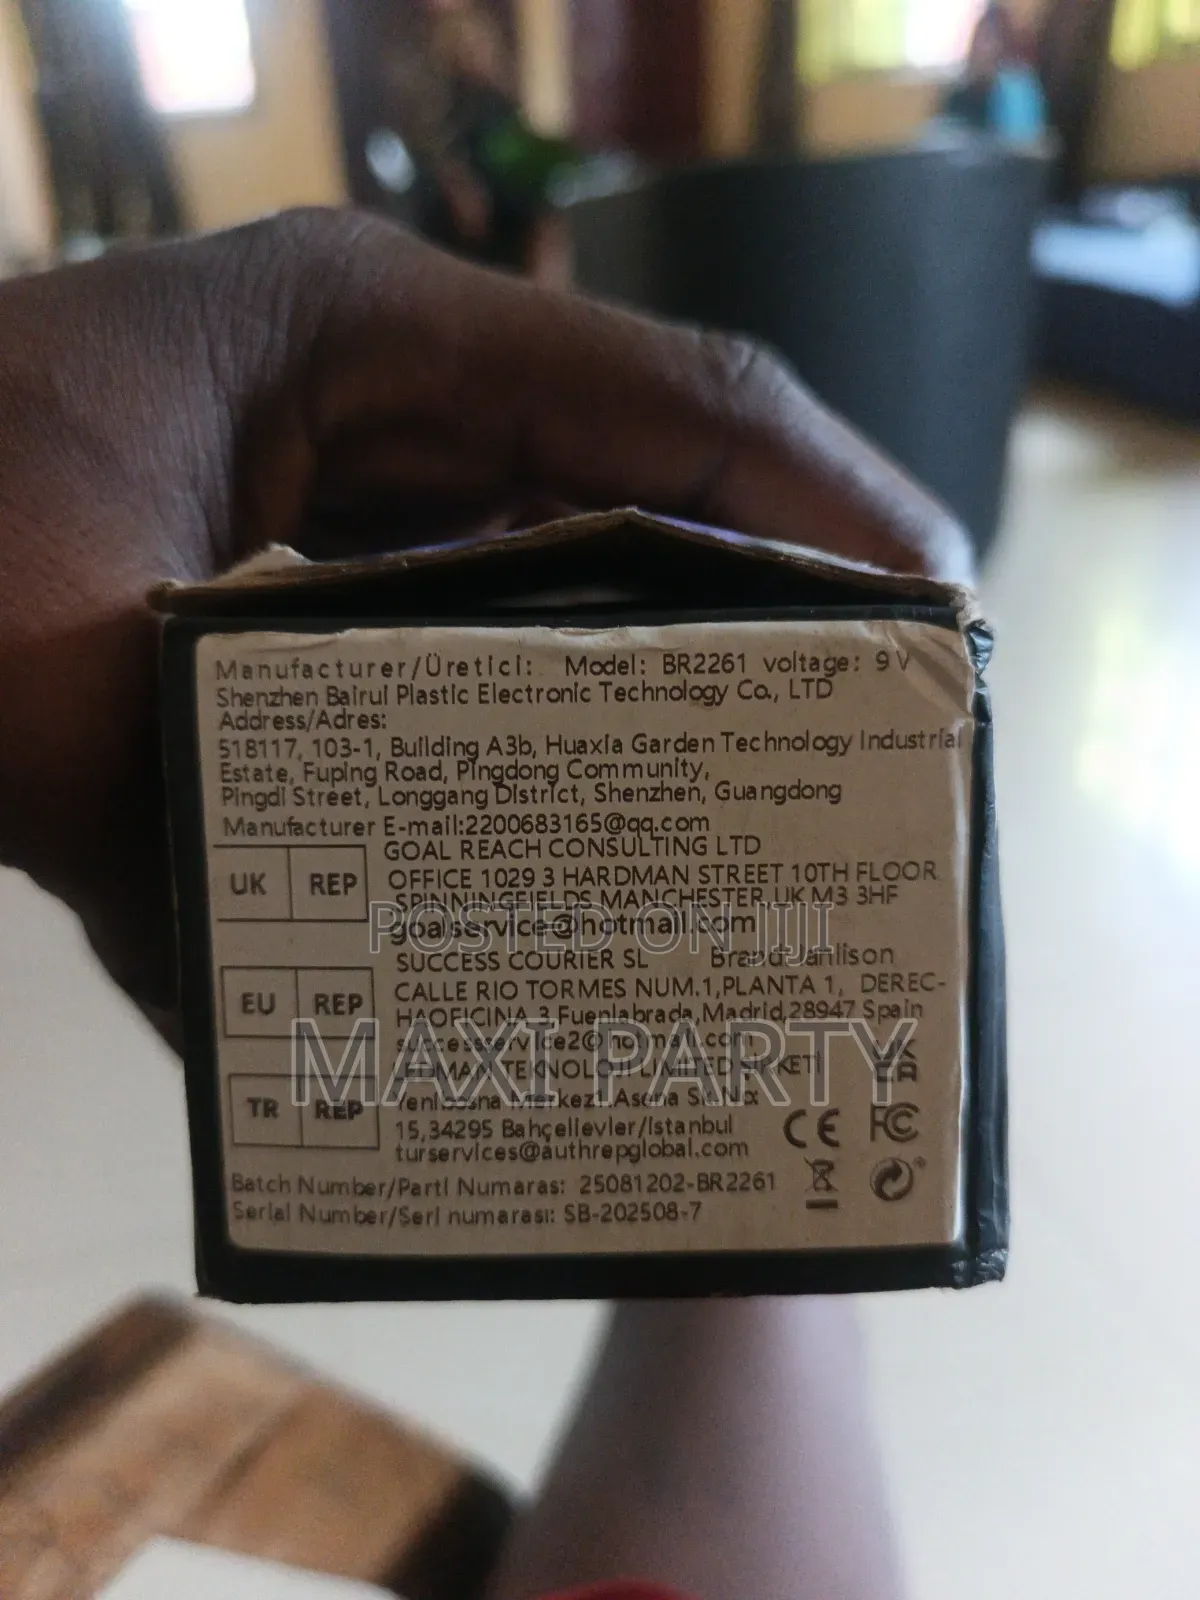 Manufacturer/Üretici: Model: BR2261 voltage: 9V
Shenzhen Bairui Plastic Electronic Technology Co., LTD
Address/Adres:
518117, 103-1, Building A3b, Huaxia Garden Technology Industrial
Estate, Fuping Road, Pingdong Community,
Pingdi Street, Longgang District, Shenzhen, Guangdong
Manufacturer E-mail:2200683165@qq.com
GOAL REACH CONSULTING LTD
UK REP
OFFICE 1029 3 HARDMAN STREET 10TH FLOOR
SPINNINGFIELDS MANCHESTER, UK M3 3HF
goalservice@hotmail.com
POSTED ON JIJI
SUCCESS COURIER SL Brand:Janlison
EU REP
CALLE RIO TORMES NUM.1,PLANTA 1, DEREC-
HAOFICINA 3 Fuenlabrada,Madrid,28947 Spain
successservice2@hotmail.com
MAXI PARTY
TEKNOLOJI LIMITED
UK CA
TR REP
Merkez
15,34295 Bahçelievler/Istanbul
turservices@authrepglobal.com
CE FC
Batch Number/Parti Numaras: 25081202-BR2261
Serial Number/Seri numarası: SB-202508-7